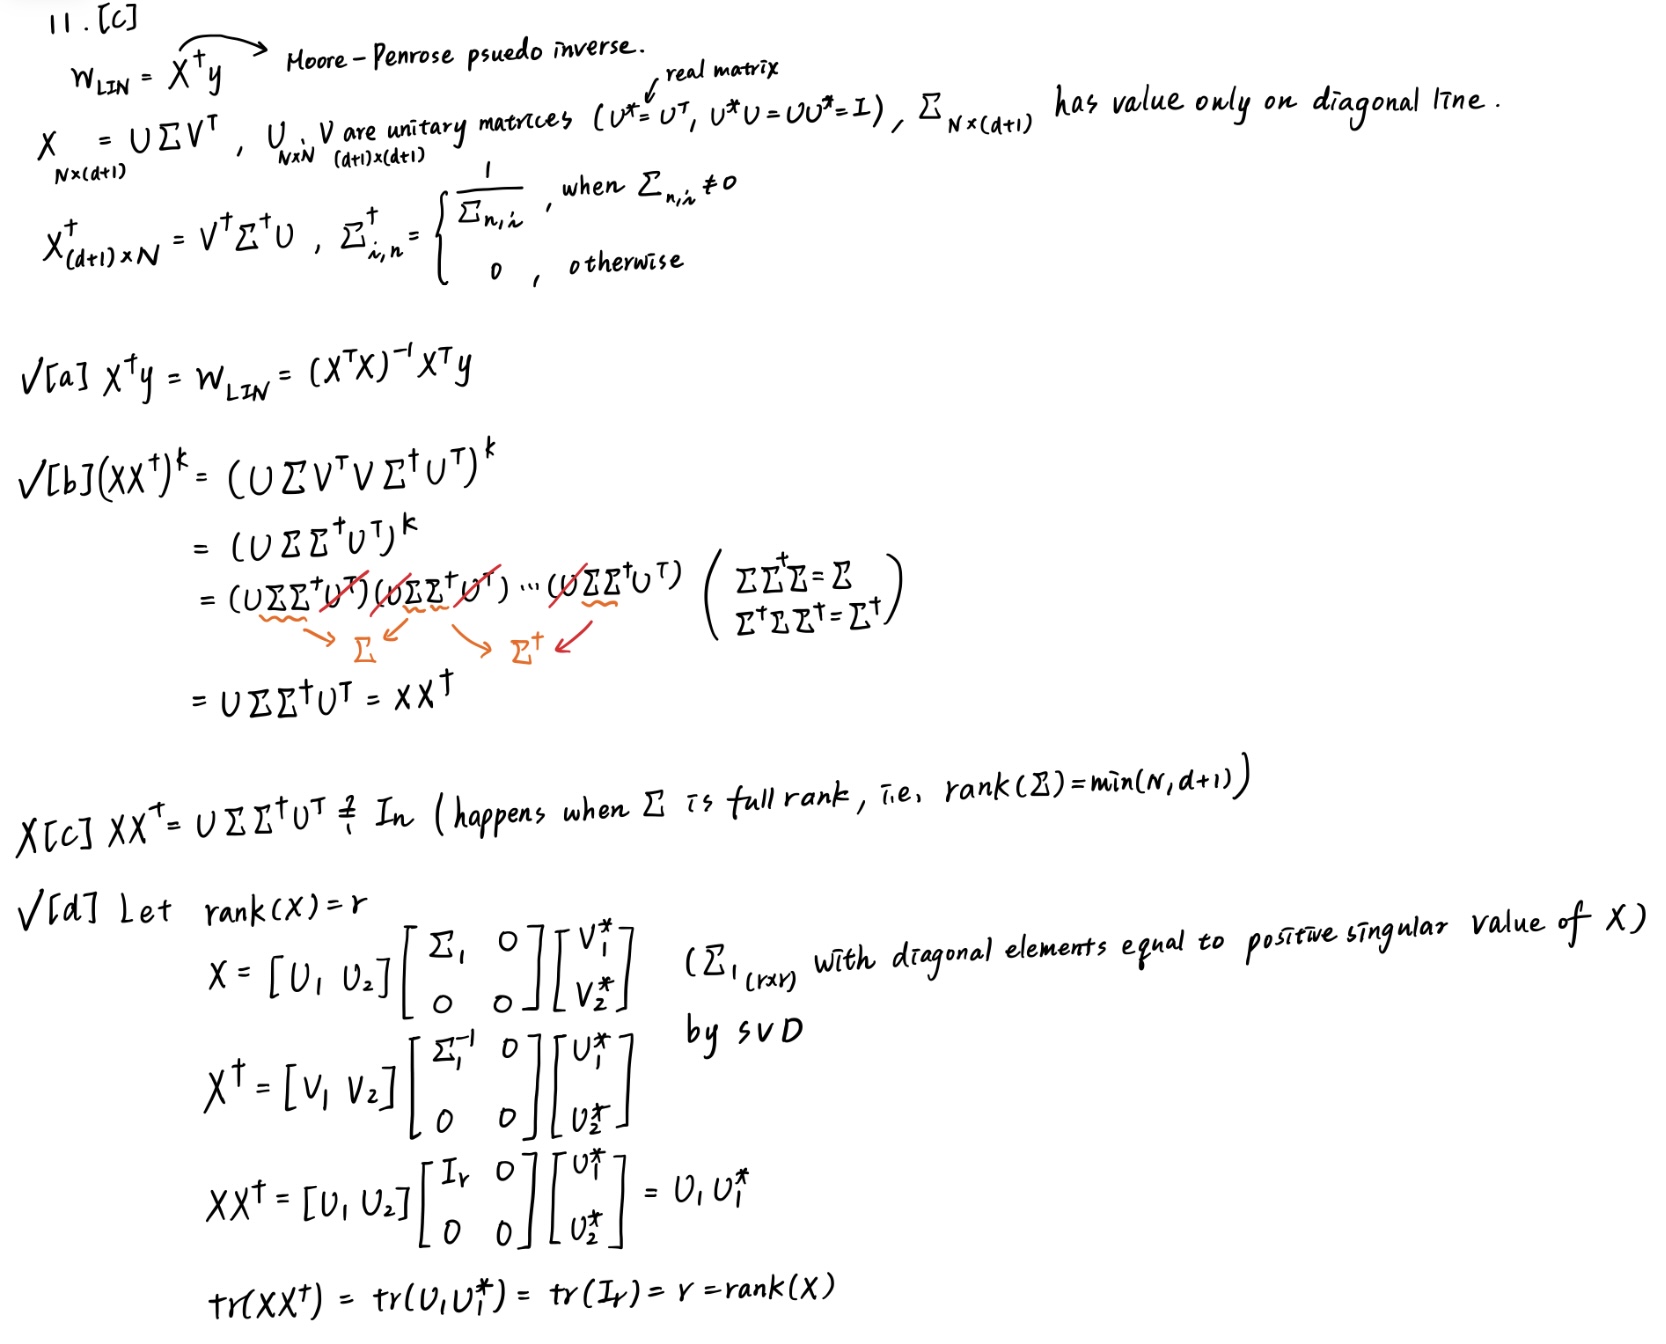 11. [c]
w_LIN = X†y → Moore-Penrose psuedo inverse.
real matrix
X_{N×(d+1)} = UΣV^T , U_{N×N}, V_{(d+1)×(d+1)} are unitary matrices (U* = U^T, U*U = UU* = I), Σ_{N×(d+1)} has value only on diagonal line.
X†_{(d+1)×N} = V†Σ†U , Σ†_{i,n} = { 1/Σ_{n,i} , when Σ_{n,i} ≠ 0
0 , otherwise
√[a] X†y = w_LIN = (X^TX)^{-1}X^Ty
√[b] (XX†)^k = (UΣV^TVΣ†U^T)^k
= (UΣΣ†U^T)^k
= (UΣΣ†U^T)(UΣΣ†U^T) ... (UΣΣ†U^T) ( ΣΣ†Σ = Σ
Σ†ΣΣ† = Σ† )
Σ Σ†
= UΣΣ†U^T = XX†
X[c] XX† = UΣΣ†U^T ≟ In (happens when Σ is full rank, i.e. rank(Σ) = min(N, d+1))
√[d] Let rank(X) = r
X = [U₁ U₂] [Σ₁ 0; 0 0] [V₁*; V₂*] (Σ₁_(r×r) with diagonal elements equal to positive singular value of X)
by SVD
X† = [V₁ V₂] [Σ₁^{-1} 0; 0 0] [U₁*; U₂*]
XX† = [U₁ U₂] [I_r 0; 0 0] [U₁*; U₂*] = U₁U₁*
tr(XX†) = tr(U₁U₁*) = tr(I_r) = r = rank(X)